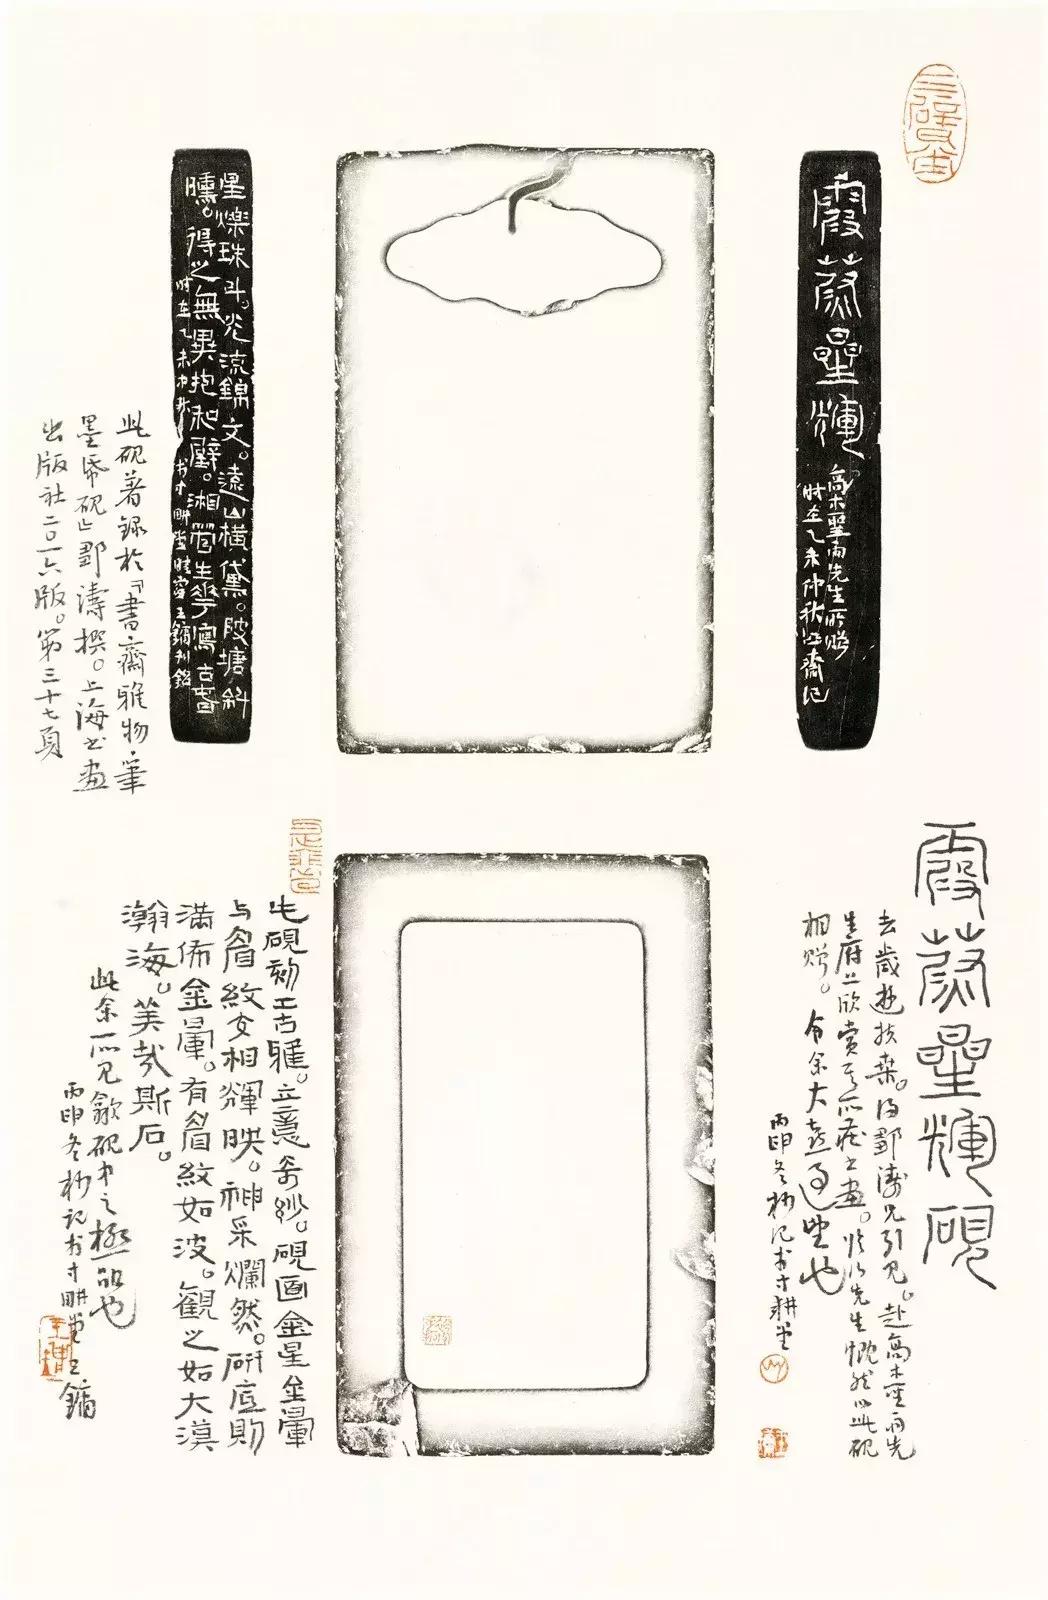 霞蔚星輝
高木聖雨先生所贈
時在乙未仲秋 齋記
星爍珠斗。光流錦文。遠山橫黛。陂塘斜
曛。得之無異抱和璧。湘管生華寫古春
時在乙未中秋 王鏞刊銘
此硯著錄於『書齋雅物·筆
墨紙硯』鄒濤撰。上海書畫
出版社二〇一六版。第三十七頁
霞蔚星輝硯
去歲遊扶桑。得鄒濤兄引見。赴高木聖雨先
生府上欣賞其所藏書畫。臨行先生慨然以此硯
相贈。令余大喜過望也
丙申冬初記於寸耕堂
此硯刻工古雅。立意奇妙。硯面金星金暈
与眉紋交相輝映。神采爛然。硏底則
滿佈金暈。有眉紋如波。觀之如大漠
瀚海。美哉斯石。
此余所見歙硯中之極品也
丙申冬初記於寸畊堂王鏞